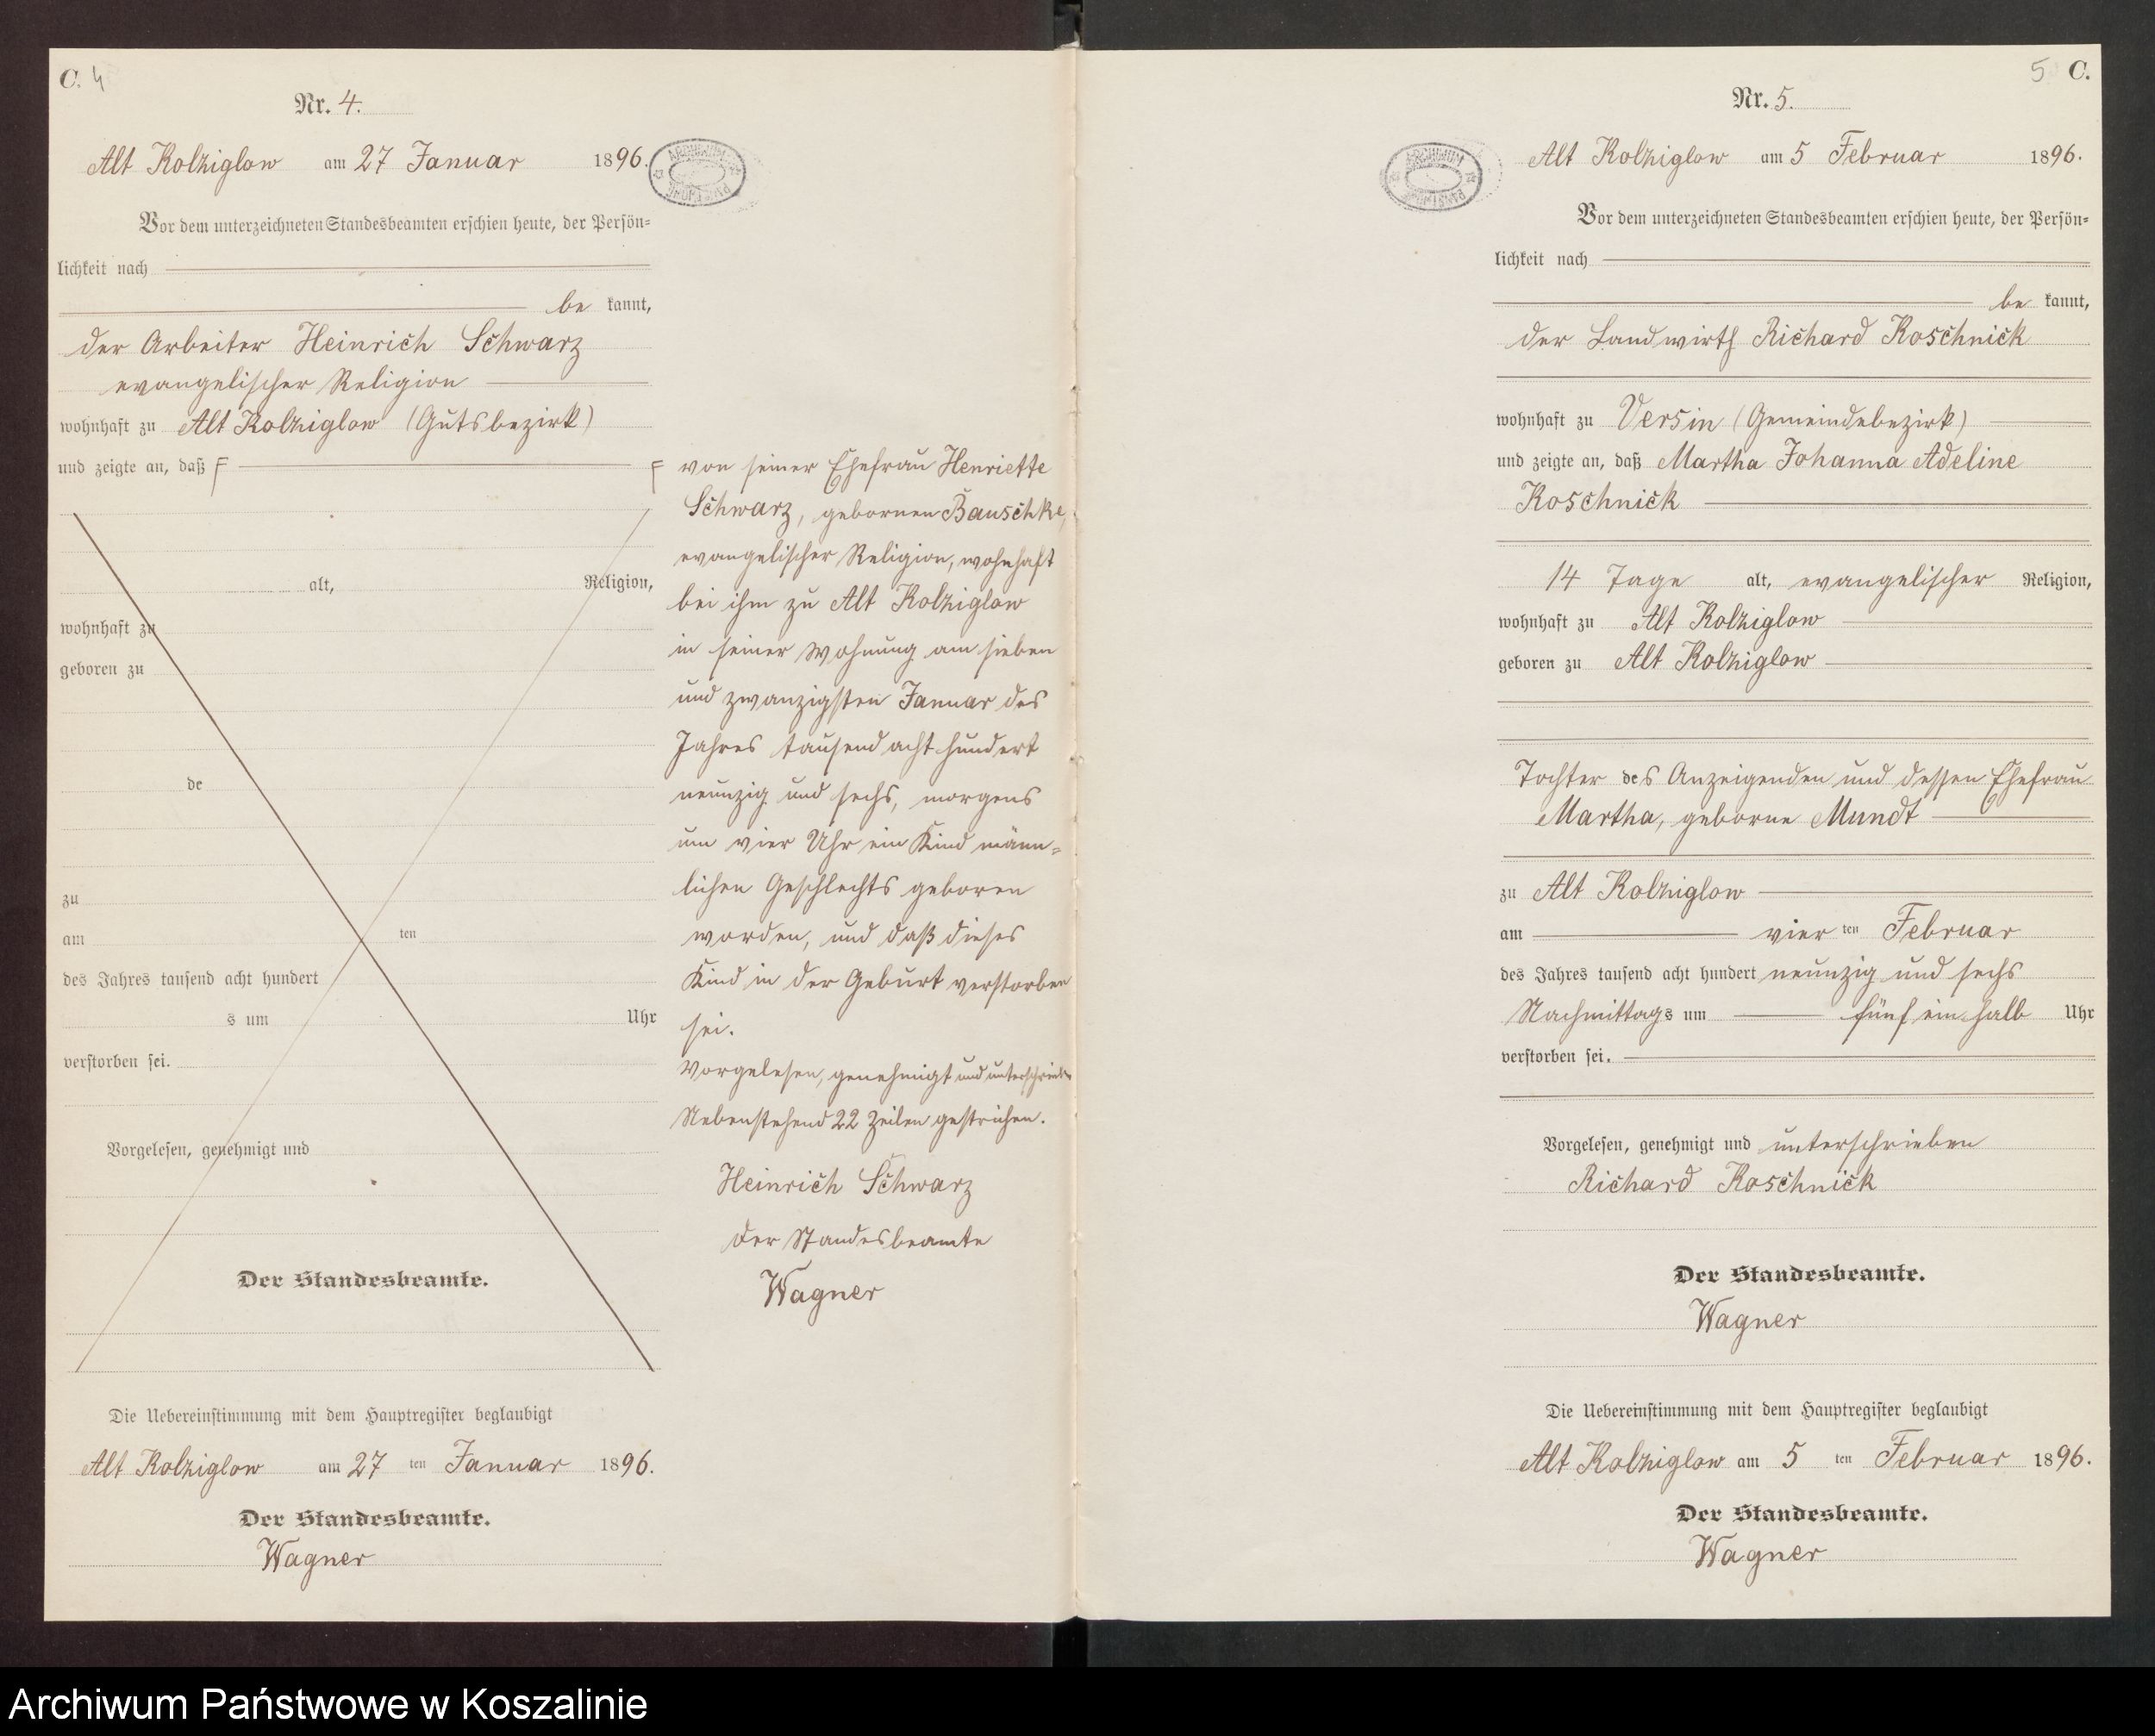 C. 4
Nr. 4.
Alt Kolziglow am 27 Januar 1896.
Vor dem unterzeichneten Standesbeamten erschien heute, der Persön=
lichkeit nach
be kannt,
der Arbeiter Heinrich Schwarz
evangelischer Religion
wohnhaft zu Alt Kolziglow (Gutsbezirk)
und zeigte an, daß F
alt, Religion,
wohnhaft zu
geboren zu
de
zu
am ten
des Jahres tausend acht hundert
s um Uhr
verstorben sei.
Vorgelesen, genehmigt und
Der Standesbeamte.
F von seiner Ehefrau Henriette
Schwarz, gebornen Bauschke,
evangelischer Religion, wohnhaft
bei ihm zu Alt Kolziglow
in seiner Wohnung am sieben
und zwanzigsten Januar des
Jahres tausend acht hundert
neunzig und sechs, morgens
um vier Uhr ein Kind männ=
lichen Geschlechts geboren
worden, und daß dieses
Kind in der Geburt verstorben
sei.
Vorgelesen, genehmigt und unterschrieben
Nebenstehend 22 Zeilen gestrichen.
Heinrich Schwarz
Der Standesbeamte
Wagner
Die Uebereinstimmung mit dem Hauptregister beglaubigt
Alt Kolziglow am 27 ten Januar 1896.
Der Standesbeamte.
Wagner
5 C.
Nr. 5.
Alt Kolziglow am 5 Februar 1896.
Vor dem unterzeichneten Standesbeamten erschien heute, der Persön=
lichkeit nach
be kannt,
der Landwirth Richard Koschnick
wohnhaft zu Versin (Gemeindebezirk)
und zeigte an, daß Martha Johanna Adeline
Koschnick
14 Tage alt, evangelischer Religion,
wohnhaft zu Alt Kolziglow
geboren zu Alt Kolziglow
Tochter des Anzeigenden und dessen Ehefrau
Martha, geborne Mundt
zu Alt Kolziglow
am vier ten Februar
des Jahres tausend acht hundert neunzig und sechs
Nachmittags um fünf ein halb Uhr
verstorben sei.
Vorgelesen, genehmigt und unterschrieben
Richard Koschnick
Der Standesbeamte.
Wagner
Die Uebereinstimmung mit dem Hauptregister beglaubigt
Alt Kolziglow am 5 ten Februar 1896.
Der Standesbeamte.
Wagner
Archiwum Państwowe w Koszalinie